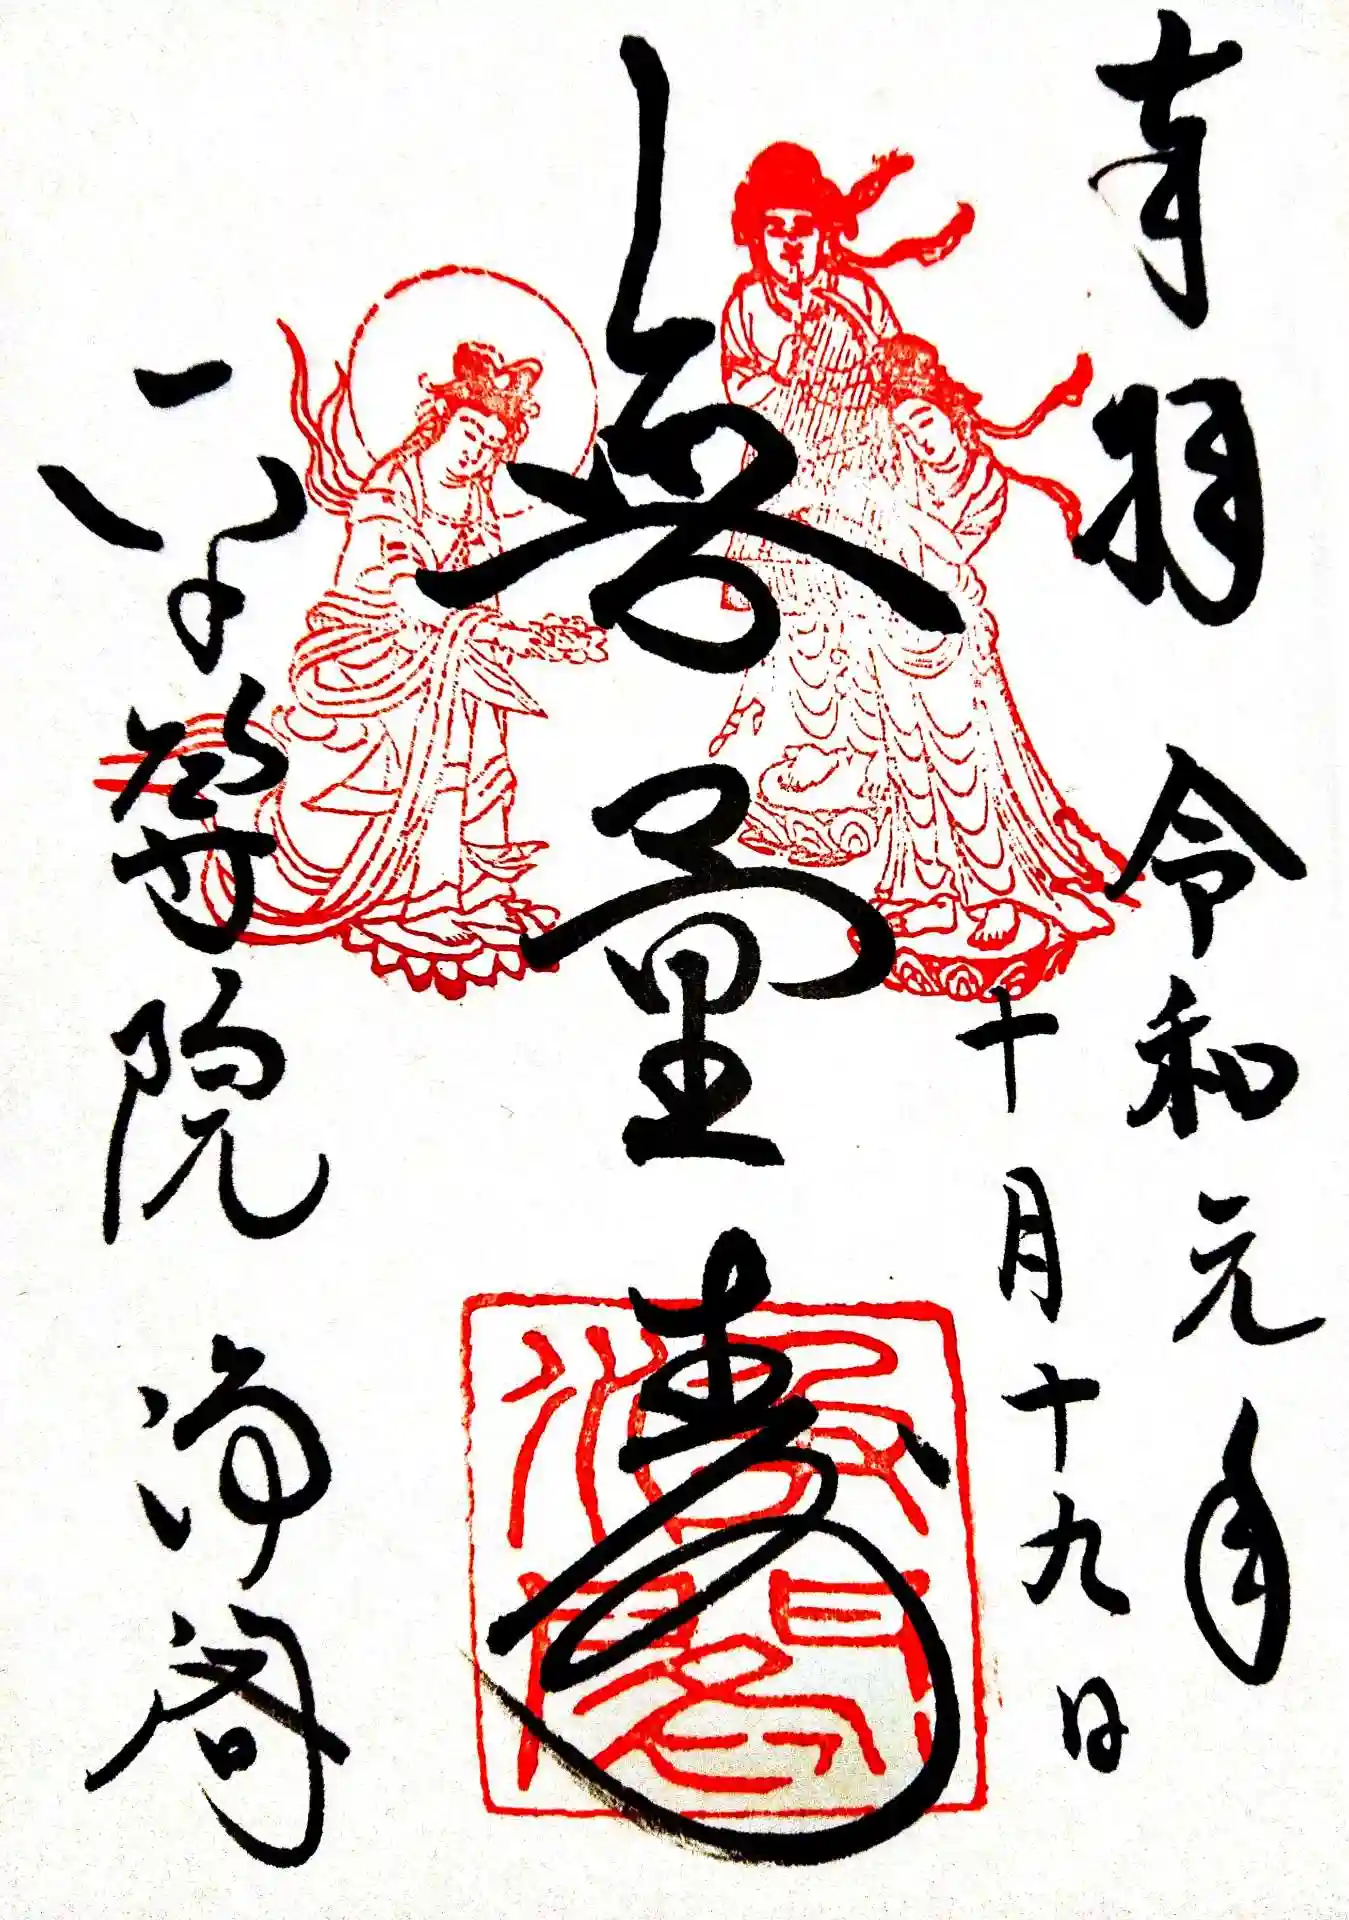 奉拝 令和元年
十月十九日
無量壽
平等院 浄閣